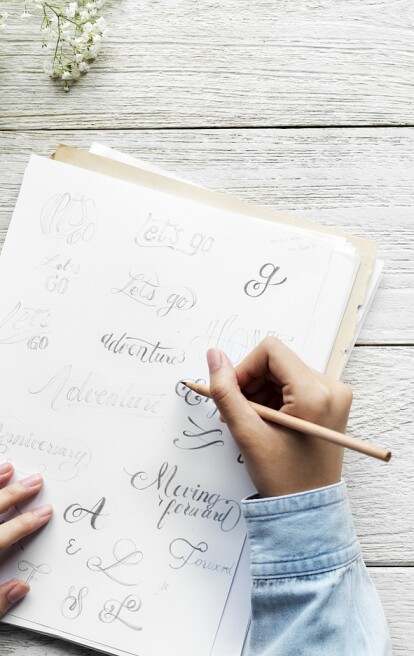 Let's go
Let's go
g
Let's
GO
Let's go
Let's
GO
adventure
Adventure
Anniversary
Moving
forward
A
E
L
Forward
F
S
L